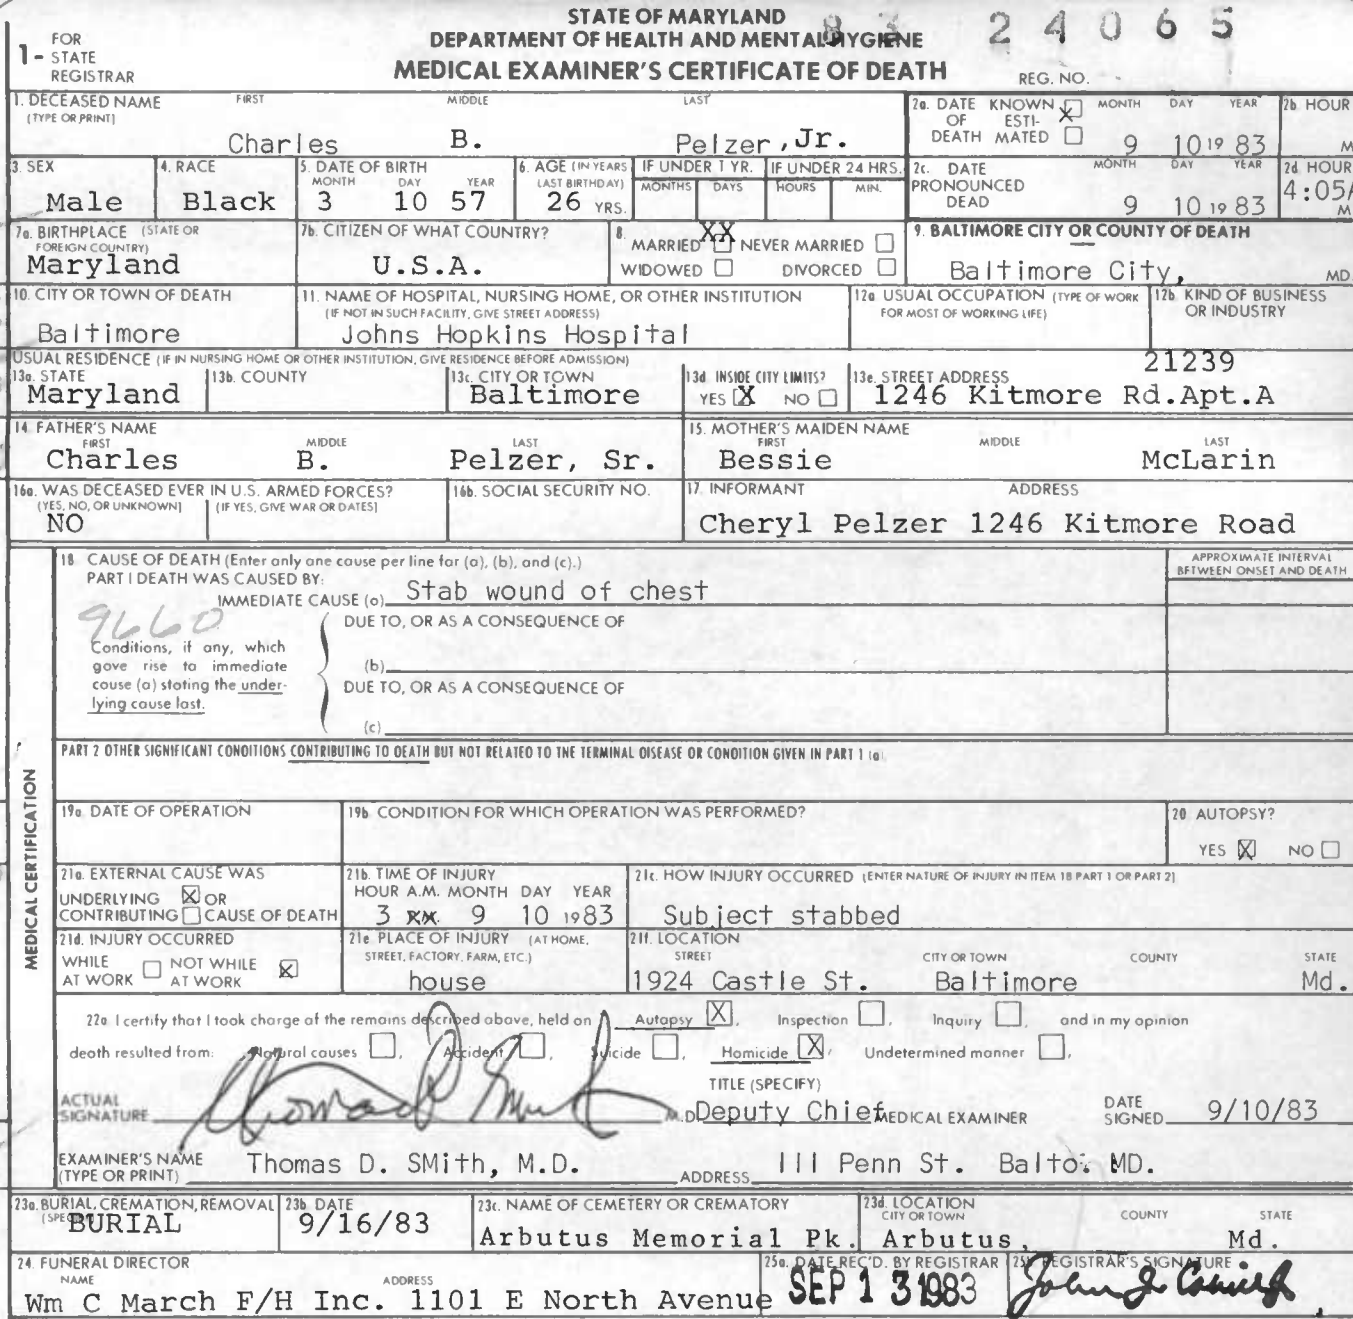 STATE OF MARYLAND
DEPARTMENT OF HEALTH AND MENTAL HYGIENE
MEDICAL EXAMINER'S CERTIFICATE OF DEATH
1- FOR STATE REGISTRAR
83 24065
REG. NO.
1. DECEASED NAME (TYPE OR PRINT) FIRST MIDDLE LAST
Charles B. Pelzer, Jr.
2a. DATE OF DEATH KNOWN X ESTIMATED MONTH DAY YEAR
9 10 19 83
2b. HOUR M
3. SEX
Male
4. RACE
Black
5. DATE OF BIRTH MONTH DAY YEAR
3 10 57
6. AGE (IN YEARS LAST BIRTHDAY)
26 YRS.
IF UNDER 1 YR. MONTHS DAYS
IF UNDER 24 HRS. HOURS MIN.
2c. DATE PRONOUNCED DEAD MONTH DAY YEAR
9 10 19 83
2d HOUR
4:05A M
7a. BIRTHPLACE (STATE OR FOREIGN COUNTRY)
Maryland
7b. CITIZEN OF WHAT COUNTRY?
U.S.A.
8. MARRIED XX NEVER MARRIED
WIDOWED DIVORCED
9. BALTIMORE CITY OR COUNTY OF DEATH
Baltimore City, MD.
10. CITY OR TOWN OF DEATH
Baltimore
11. NAME OF HOSPITAL, NURSING HOME, OR OTHER INSTITUTION
(IF NOT IN SUCH FACILITY, GIVE STREET ADDRESS)
Johns Hopkins Hospital
12a USUAL OCCUPATION (TYPE OF WORK FOR MOST OF WORKING LIFE)
12b. KIND OF BUSINESS OR INDUSTRY
USUAL RESIDENCE (IF IN NURSING HOME OR OTHER INSTITUTION, GIVE RESIDENCE BEFORE ADMISSION)
13a. STATE
Maryland
13b. COUNTY
13c. CITY OR TOWN
Baltimore
13d. INSIDE CITY LIMITS?
YES X NO
13e. STREET ADDRESS
21239
1246 Kitmore Rd.Apt.A
14 FATHER'S NAME FIRST MIDDLE LAST
Charles B. Pelzer, Sr.
15. MOTHER'S MAIDEN NAME FIRST MIDDLE LAST
Bessie McLarin
16a. WAS DECEASED EVER IN U.S. ARMED FORCES?
(YES, NO, OR UNKNOWN) (IF YES, GIVE WAR OR DATES)
NO
16b. SOCIAL SECURITY NO.
17. INFORMANT ADDRESS
Cheryl Pelzer 1246 Kitmore Road
MEDICAL CERTIFICATION
18 CAUSE OF DEATH (Enter only one cause per line for (a), (b), and (c).)
PART I DEATH WAS CAUSED BY:
IMMEDIATE CAUSE (a) Stab wound of chest
APPROXIMATE INTERVAL BETWEEN ONSET AND DEATH
9660
DUE TO, OR AS A CONSEQUENCE OF
Conditions, if any, which
gave rise to immediate
cause (a) stating the under-
lying cause last.
(b)
DUE TO, OR AS A CONSEQUENCE OF
(c)
PART 2 OTHER SIGNIFICANT CONDITIONS CONTRIBUTING TO DEATH BUT NOT RELATED TO THE TERMINAL DISEASE OR CONDITION GIVEN IN PART 1 (a)
19a DATE OF OPERATION
19b CONDITION FOR WHICH OPERATION WAS PERFORMED?
20 AUTOPSY?
YES X NO
21a. EXTERNAL CAUSE WAS
UNDERLYING X OR
CONTRIBUTING CAUSE OF DEATH
21b. TIME OF INJURY
HOUR A.M. MONTH DAY YEAR
3 9 10 1983
21c. HOW INJURY OCCURRED (ENTER NATURE OF INJURY IN ITEM 18 PART 1 OR PART 2)
Subject stabbed
21d. INJURY OCCURRED
WHILE AT WORK NOT WHILE AT WORK X
21e PLACE OF INJURY (AT HOME, STREET, FACTORY, FARM, ETC.)
house
21f. LOCATION
STREET CITY OR TOWN COUNTY STATE
1924 Castle St. Baltimore Md.
22a I certify that I took charge of the remains described above, held on Autopsy X, Inspection, Inquiry, and in my opinion
death resulted from: Natural causes, Accident, Suicide, Homicide X, Undetermined manner,
ACTUAL SIGNATURE Thomas D Smith M.D.
TITLE (SPECIFY)
Deputy Chief MEDICAL EXAMINER
DATE SIGNED 9/10/83
EXAMINER'S NAME (TYPE OR PRINT) Thomas D. SMith, M.D.
ADDRESS 111 Penn St. Balto. MD.
23a. BURIAL, CREMATION, REMOVAL (SPECIFY)
BURIAL
23b. DATE
9/16/83
23c. NAME OF CEMETERY OR CREMATORY
Arbutus Memorial Pk.
23d. LOCATION CITY OR TOWN COUNTY STATE
Arbutus, Md.
24. FUNERAL DIRECTOR
NAME ADDRESS
Wm C March F/H Inc. 1101 E North Avenue
25a. DATE REC'D. BY REGISTRAR
SEP 13 1983
25b. REGISTRAR'S SIGNATURE